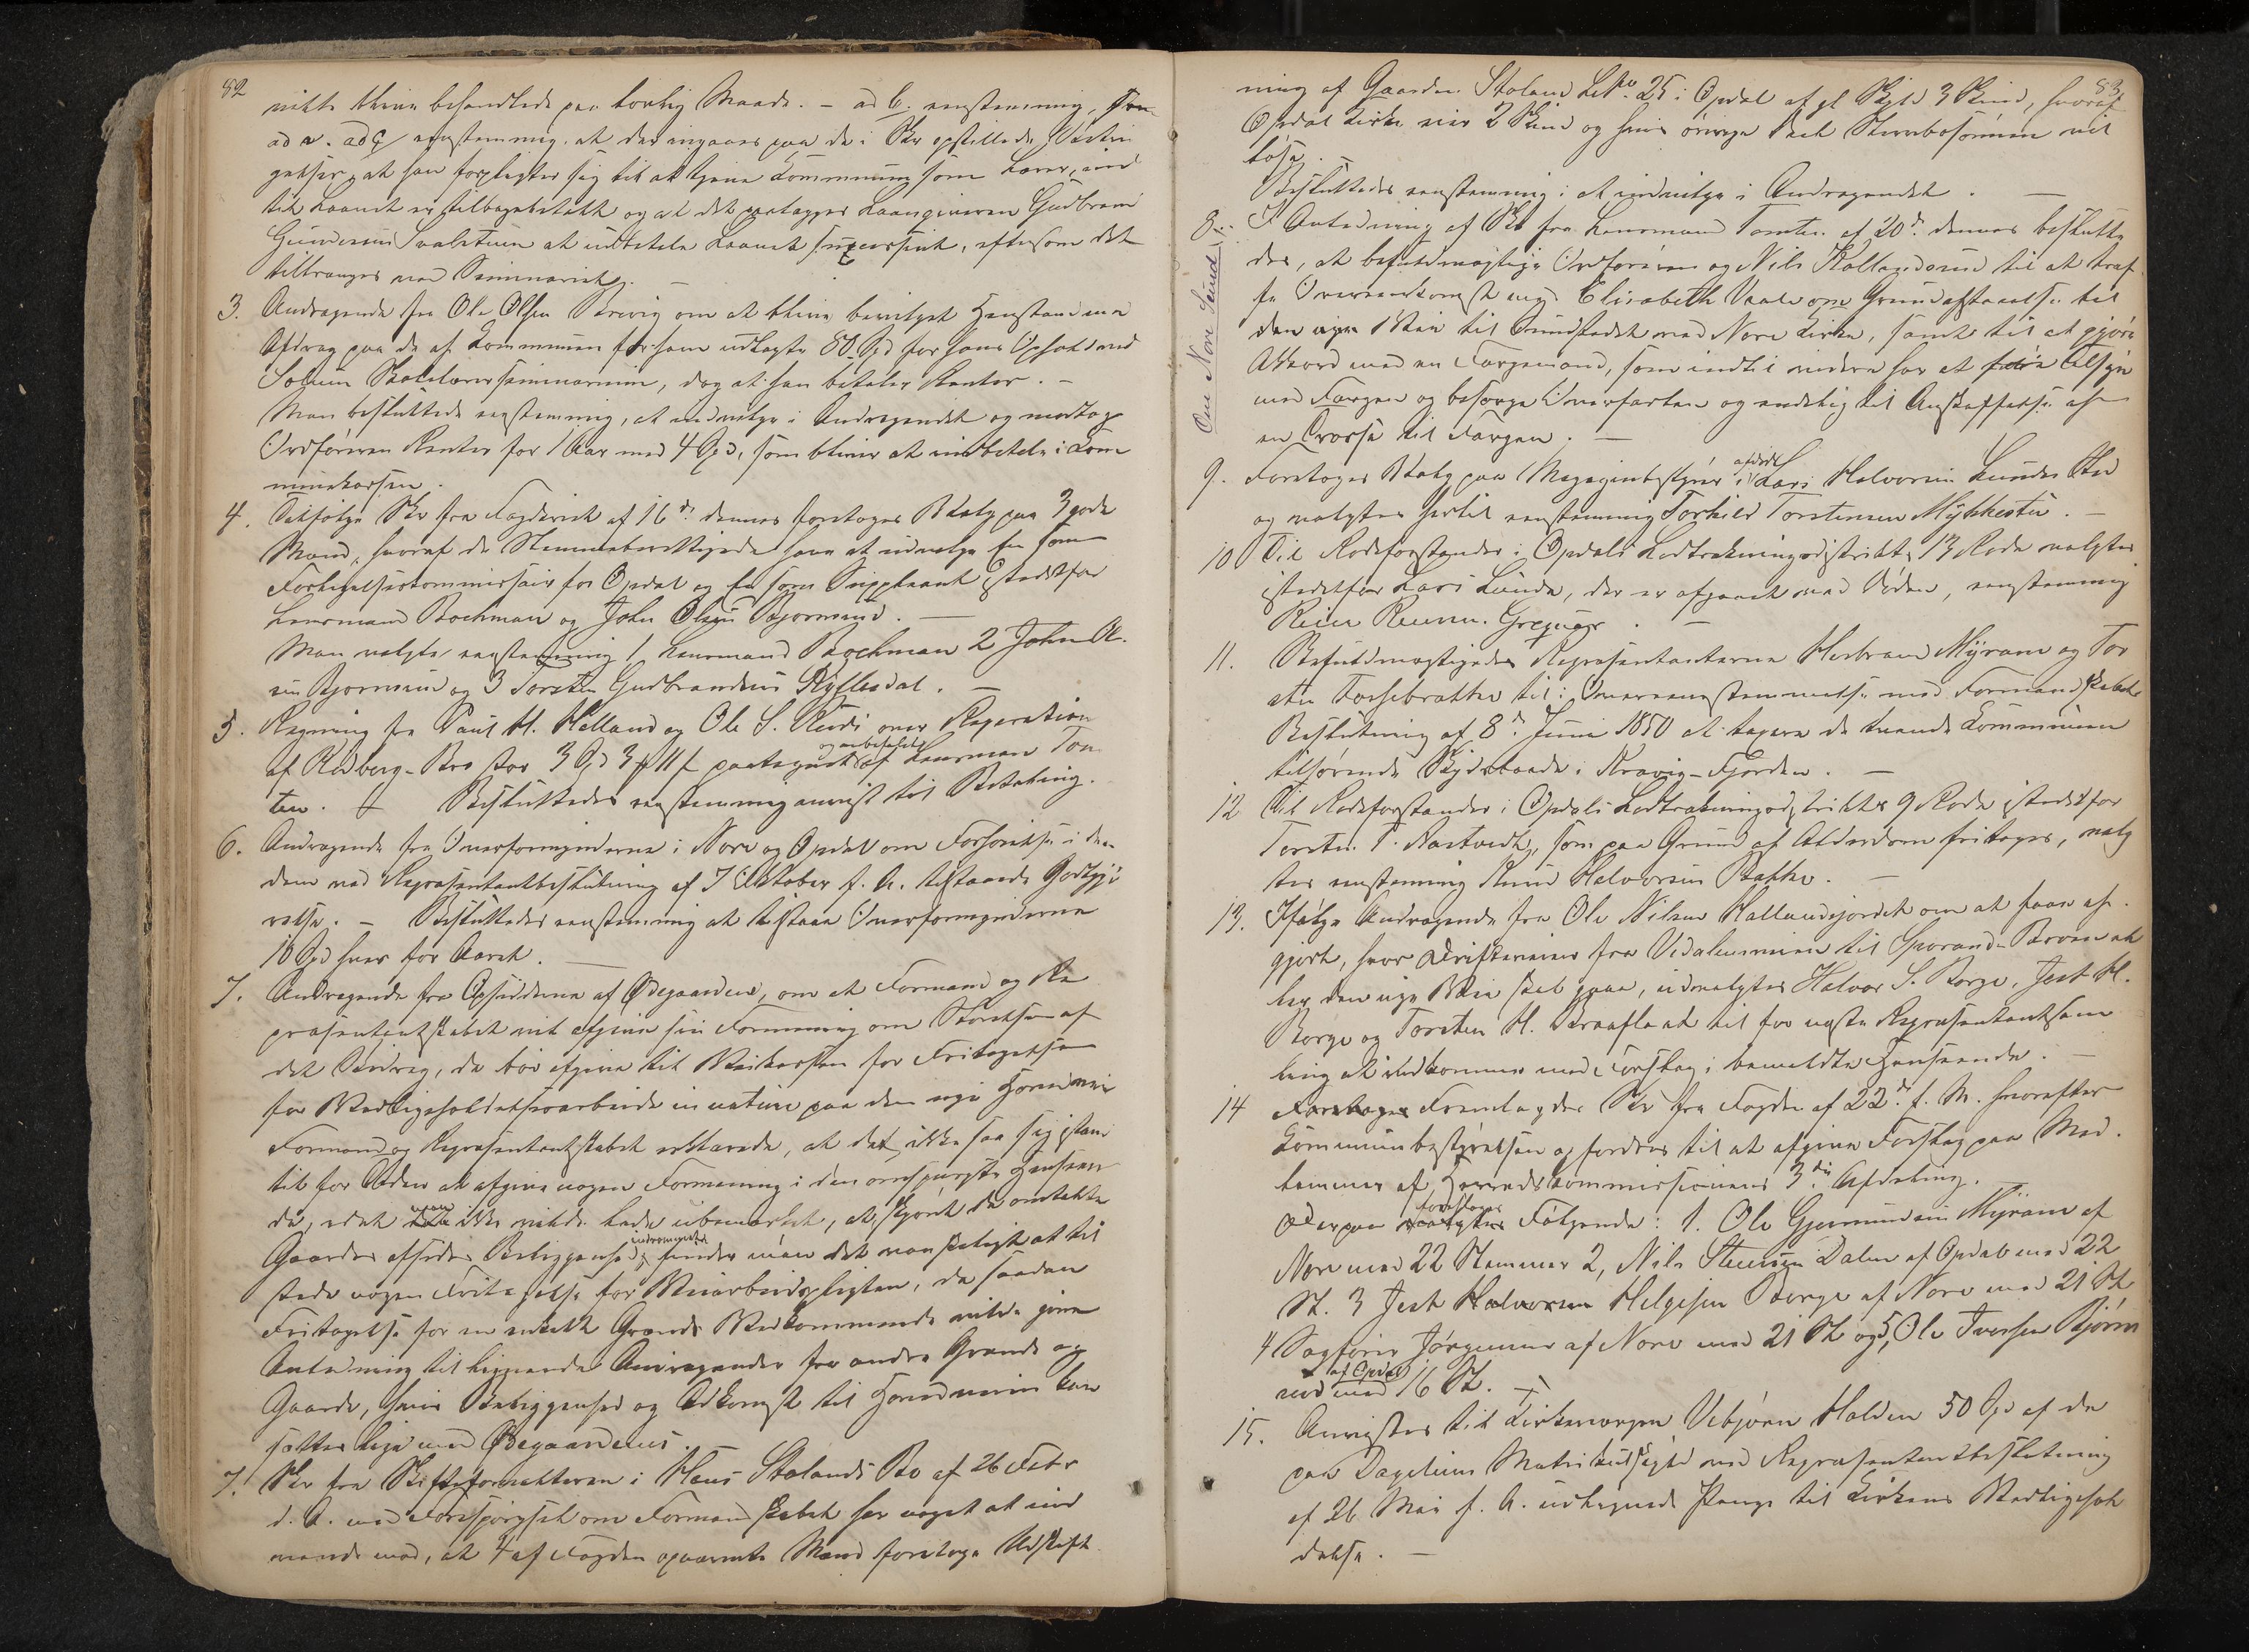 82
vilde blive behandlede paa lovlig Maade. – ad b. eenstemmig, Som
ad a. ad c/ eenstemmig, at der indgaaes paa de i Skr opstillede Betin
gelser, at han forpligter sig til at tjene Kommunen som Lærer, ind
til Laanet er tilbagebetalt og at det paalægges Laangiveren Gudbrand
Gundersen at udbetale Laanet successivt, eftersom det
tiltrænges ved Seminariet. –
3. Andragende fra Ole Olsen Brevig om at blive bevilget Henstand med
Afdrag paa de af Kommunen for ham udlagte 80 Spd for hans Ophold ved
Skolelærerseminarium, dog at han betaler Renter. –
Man besluttede eenstemmig, at indvilge i Andragendet og modtog
Ordføreren Renter for 1 Aar med 4 Spd, som bliver at indbetale i Kom
munekassen.
4. Ifølge Skr fra Fogderiet af 16de dennes foretoges Valg paa 3 gode
Mænd, hvoraf de Stemmeberettigede have at udvælge En som
Forligelseskommissair for Opdal og En som Suppleant istedetfor
Lensmand Bochman og John Olsen Bjørnerud. –
Man valgte eenstemmig 1 Lensmand Bochman 2 John Ol
sen Bjørnerud og 3 Torsten Gudbrandsen. –
5. Regning fra Paul H. Helland og Ole S. Rudi over Reparation
af Rødberg-Bro stor 3 Spd 3 # 11 ß paategnet og anbefalet af Lensman Tom
ten. # Besluttedes eenstemmig anvist til Betaling.
6. Andragende fra Overformynderne i Nore og Opdal om Forhøielse i den
dem ved Repræsentantbeslutning af 7 Oktober f. A. tilstaaede Godtgjø
relse. – Besluttedes eenstemmig at tilstaae Overformynderne
10 Spd hver for Aaret. –
7. Andragende fra Opsidderne af Ødegaarden, om at Formand og Re
præsentantskabet vil afgive sin Formening om Størrelsen af
det Bidrag, de bør afgive til Veikassen for Fritagelse
for Vedligeholdelsesarbeide in natura paa den nye Hovedvei
Formand og Repræsentantskabet erklærede, at det ikke saa sig istand
til for Tiden at afgive nogen Formening i den omspurgte Henseen
de, idet man ikke vilde lade ubemærket, at, skjønt de omtalte
Gaardes afsides Beliggenhed indrømmedes, finder man det vanskeligt at til
stede nogen Fritagelse for Veiarbeidspligten, da saadan
Fritagelse for en enkelt Grends Vedkommende vilde give
Anledning til lignende Andragender fra andre Grende og
Gaarde, hvis Beliggenhed og Adkomst til Hovedveien kan
sættes lige med Ødegaardens.
7. Skr fra Skifteforvalteren i Hans Stolands Bo af 26 Febr
d. A. med Forespørgsel om Formandskabet har noget at ind
vende mod, at 4 af Fogden opnævnte Mænd foretage Udskift
83
ning af Gaarden Stoland LNo 25 i Opdal af gl Skyld 3 Skind, hvoraf
Opdal Kirke eier 2 Skind og hvis øvrige Deel Stervbosønnen vil
løse. –
Besluttedes eenstemmig: at indvilge i Andragendet. –
Om Nore Sund
8. I Anledning af Skr fra Lensmand Tomten af 20de dennes beslutte
des, at befuldmægtige Ordføreren og Nils Hallandsrud til at træf
fe Overeenskomst med Elisabeth Vaale om Grundafstaaelse til
den nye Vei til Sundstedet ved Nore Kirke, samt til at gjøre
Akkord med en Færgemand, som indtil videre har at Tilsyn
med Færgen og besørge Overfarten og endelig til Anskaffelse af
en Trosse til Færgen. –
9. Foretoges Valg paa Magazinbestyrer i afdøde Lars Halvorsen Lundes Sted
og valgtes hertil eenstemmig Torkild Torstensen Mykkestu. –
10 Til Rodeforstander i Opdals Lodtrækningsdistrikts 13 Rode valgtes
istedetfor Lars Lunde, der er afgaaet ved Døden, eenstemmig
Reier Grejuger. –
11. Befuldmægtigedes Repræsentanterne Herbrand Myran og Tor
sten Fossebrække til: Overeensstemmelse med Formandskabets
Beslutning af 8de Juni 1850 at taxere de tvende Kommunen
tilhørende Skydsbaade i Kravig-Fjorden. –
12 Til Rodeforstander i Opdals Lodtrækningsdistrikts 9 Rode istedetfor
Torsten T. Kastvedt, som paa Grund af Alderdom fritages, valg
tes eenstemmig Knud Halvorsen Bakke. –
13. Ifølge Andragende fra Ole Nilsen Hallandsjordet om at faae af
gjort, hvor Driftsveien fra til Sporand-Broen at
den nye Vei skal gaae, udvalgtes Halvor S. Borge, Jest H.
Borge og Torsten H. Braaflaadt til for næste Repræsentantsam
ling at indkomme med Forslag i bemeldte Henseende. –
14 Foretoges Fremlagdes Skr fra Fogden af 22de f. M. hvorefter
Kommunebestyrelsen opfordres til at afgive Forslag paa Med
lemmer af Herredskommissionens 3die Afdeling. –
Derpaa valgtes foresloges Følgende: 1. Ole Gjermundsen Myran af
Nore med 22 Stemmer 2, Nils Steensen Dalen af Opdal med 22
St. 3 Jest Halvorsen Helgesen Borge af Nore med 21 St
4 Sagfører Jørgensen af Nore med 21 St og 5, Ole Iversen Bjørne
rud af Opdal med 16 St. –
15. Anvistes til Kirkeværgen Vebjørn Halden 50 Spd af de
paa Dagaliens Matrikulskyld ved Repræsentantbeslutning
af 26 Mai f. A. udlignede Penge til Kirkens Vedligehol
delse. –